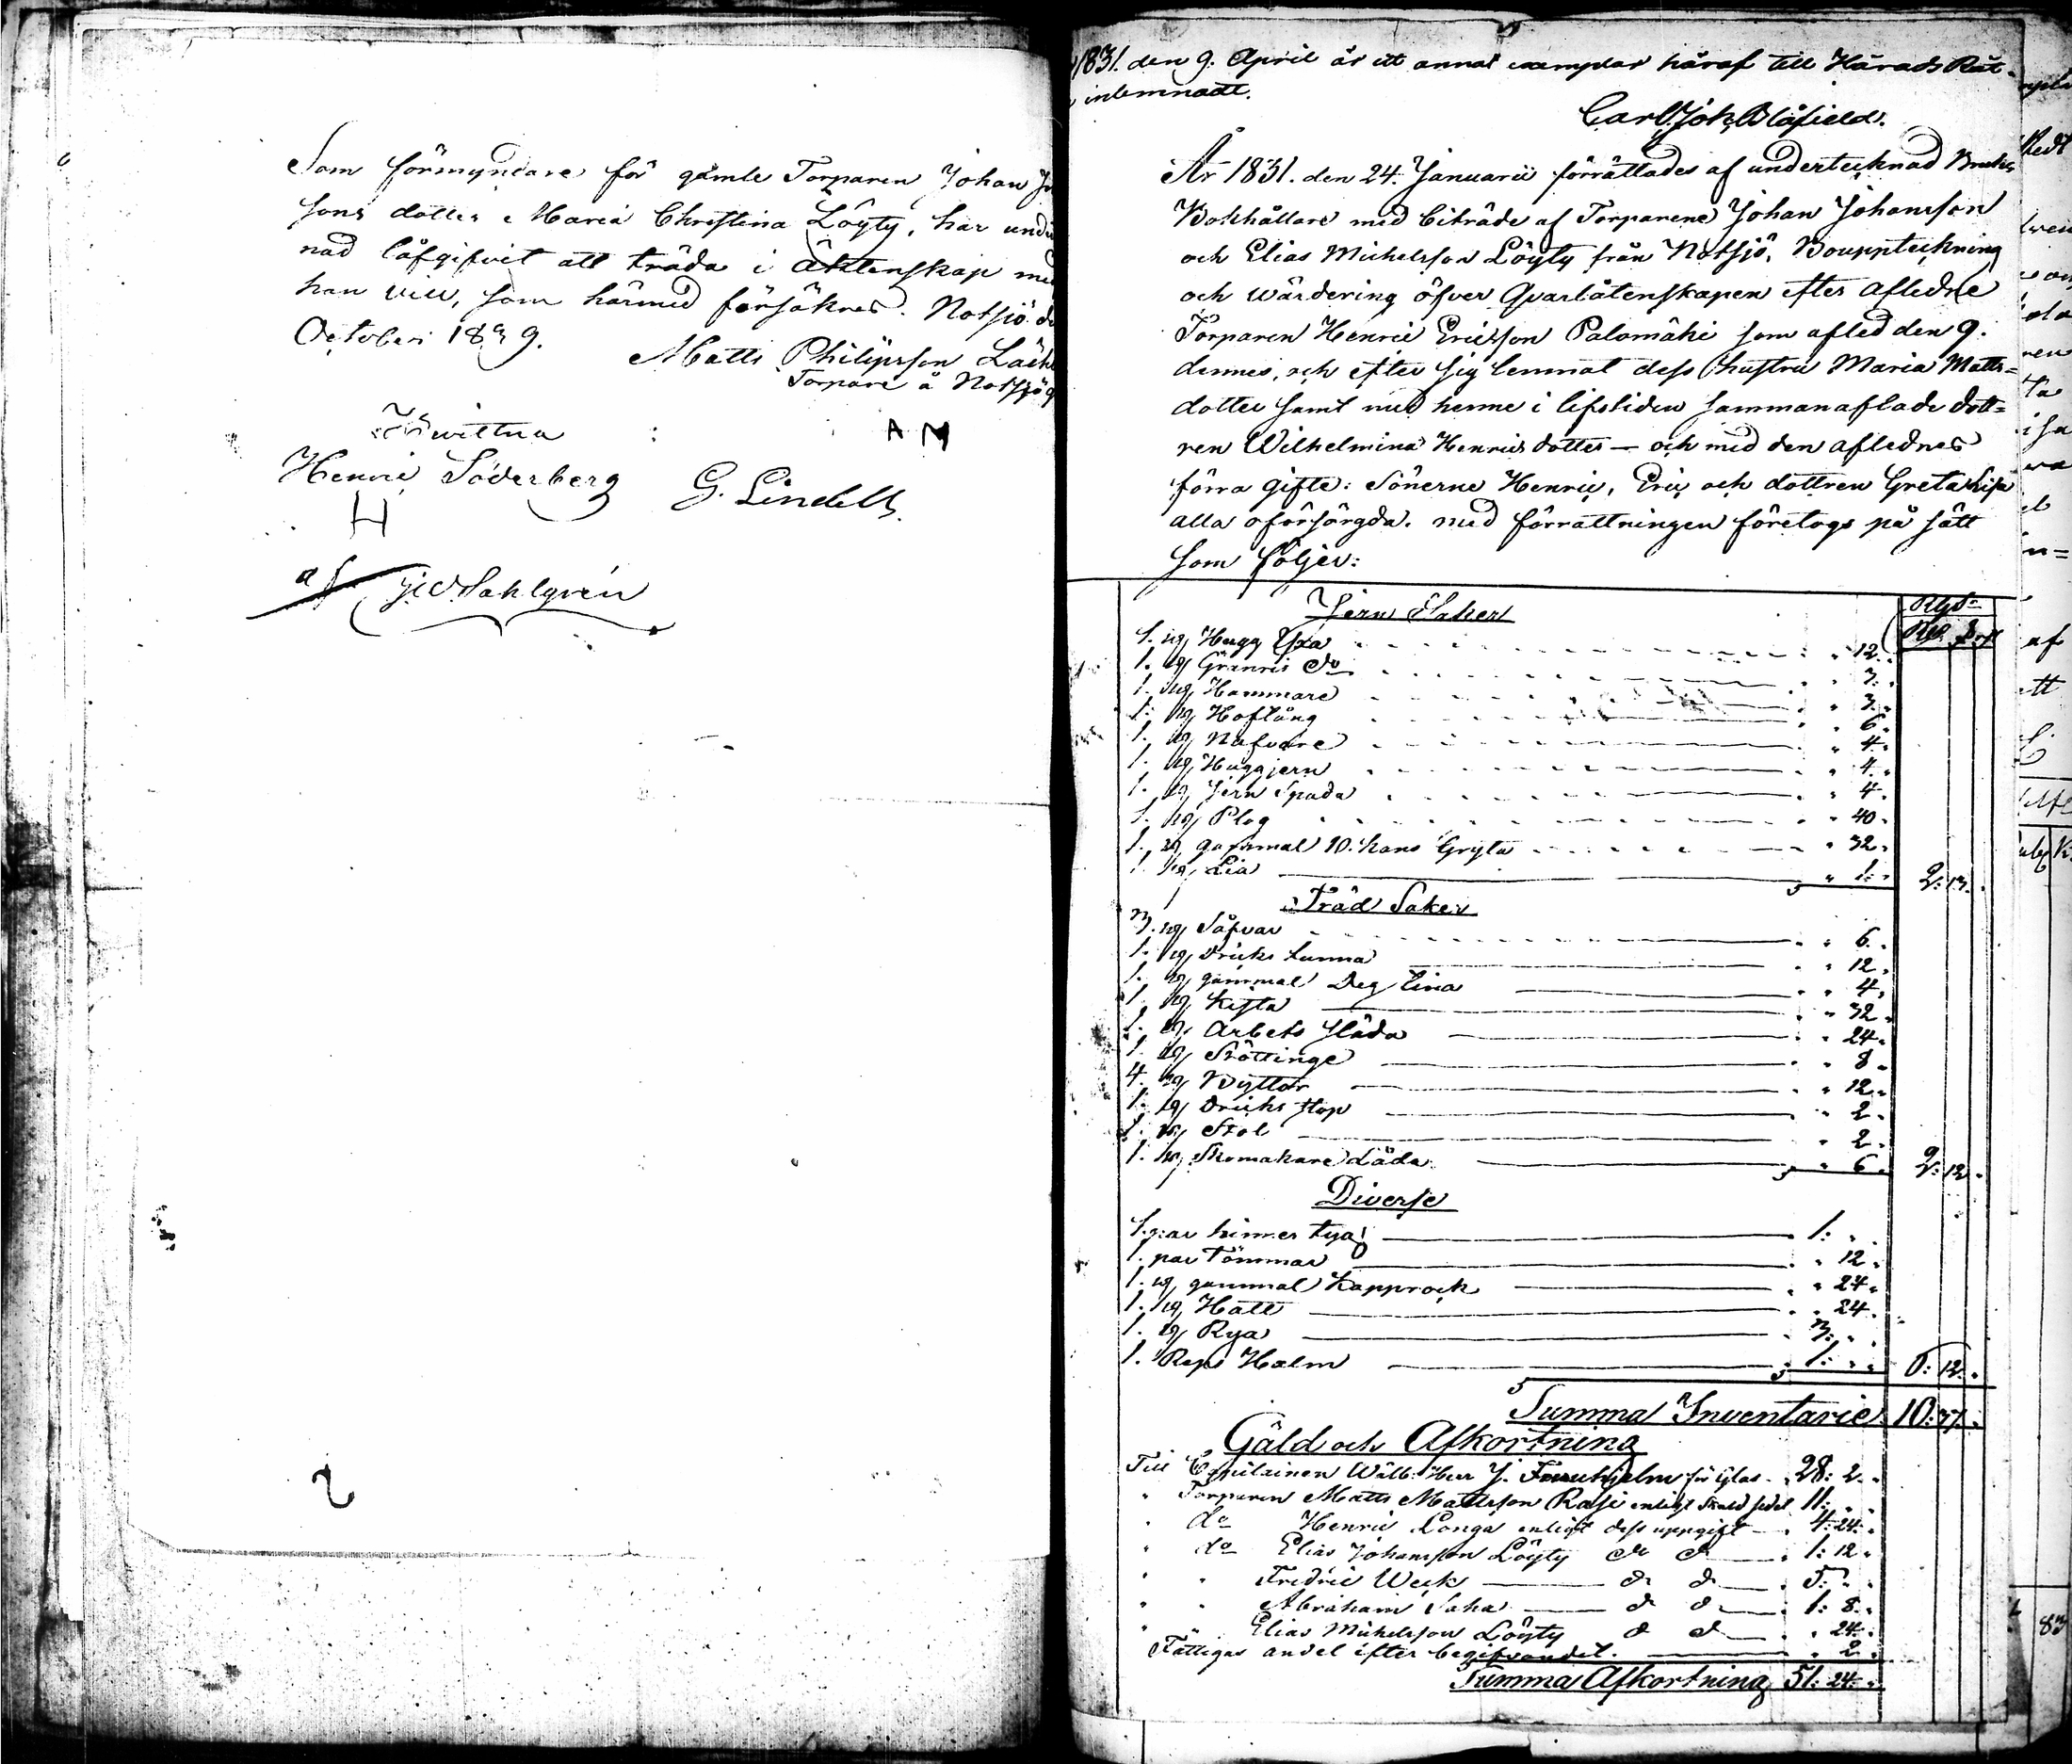 Som förmyndare för gamle Torparen Johan
sons dotter Maria Christina Löyty, har
nad låfgifvit att träda i Äktenskap
han vill, som härmed försäkras. Notsjö
October 1829.
Matts Philipsson
Torpare å Notsjö
Bewittna
A M
Henric Söderberg G. Lindell
H
af Sahlgrén
2
1831. den 9. April är ett annat exemplar häraf till Härads Rät-
inlemnadt.
Carl Joh. Blåfield.
År 1831. den 24. Januarii förrättades af undertecknad Bruks
Bokhållare med biträde af Torparene Johan Johansson
och Elias Michelsson Löyty från Notsjö, Bouppteckning
och wärdering öfver Qvarlåtenskapen efter afledne
Torparen Henric Ericsson Palomäki som afled den 9.
dennes, och efter sig lemnat dess hustru Maria Matts=
dotter samt med henne i lifstiden sammanaflade dott=
ren Wilhelmina Henricsdotter — och med den aflednes
förra gifte: Sönerne Henric, Eric och dottren Greta Lisa
alla oförsörgda. med förrättningen företogs på sätt
som följer:
Jern Saker Rgs
1. sg Hugg Yxa " 12.
1. sg Gränris do " 3.
1. sg Hammare " 3.
1. sg Hoftång " 6.
1. sg Nafvare " 4.
1. sg Huggjern " 4.
1. sg Jern Spada " 4.
1. sg Plog " 40.
1. sg gammal 10. kans Gryta " 32.
1. sg Lia " 1. 2: 13.
Träd Saker
3. sg Såfvar " 6.
1. sg Dricks tunna " 12.
1. sg gammal Deg tina " 4.
1. sg Kista " 32.
1. sg Arbets släda " 24.
1. sg Stöttinge " 8.
4. sg Byttor " 12.
1. sg Dricks stop " 2.
1. sg Stol " 2.
1. sg Skomakare Låda " 6. 2: 12.
Diverse
1. par tyg 1: "
1. par Tömmar " 12.
1. sg gammal Kapprock " 24.
1. sg Hatt " 24.
1. sg Rya 3: "
1. Reps Halm 1: " 5: 12.
Summa Inventarie 10: 37.
Gäld och Afkortning
Till Capitainen Wälb: Herr J. Furuhjelm för Glas 28: 2.
" Torparen Matts Mattsson Rasi enligt Skuld sedel 11: "
" do Henric Longa enligt dess uppgift 4: 24.
" do Elias Johansson Löyty do do 1: 12.
" " Fredric Weck do do 5: "
" " Abraham Saha do do 1: 8.
" " Elias Michelsson Löyty do do " 24.
Fattigas andel efter begifvandet. " 2.
Summa Afkortning 51: 24.